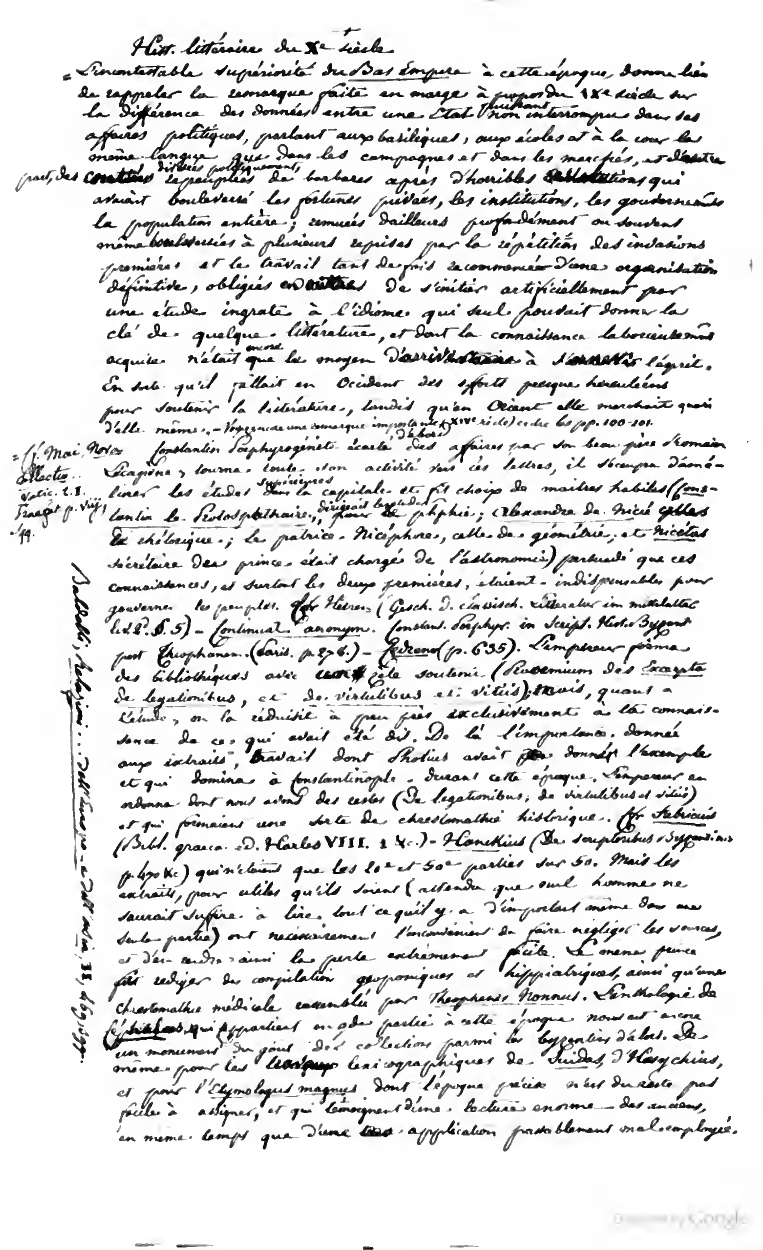 Hist. littéraire du Xe siècle
= L'incontestable supériorité du Bas Empire à cette époque, donne lieu
de rappeler la remarque faite en marge à propos du IXe siècle sur
la différence des données entre une Etat puissant non interrompu dans ses
affaires politiques, parlant aux basiliques, aux écoles et à la cour la
même langue que dans les campagnes et dans les marchés, et d'autre
part, des contrées divisées politiquement, repeuplées de barbares après d'horribles qui
avaient bouleversé les fortunes privées, les institutions, les gouvernements
la population entière; remuées d'ailleurs profondément ou souvent
même bouleversées à plusieurs reprises par la répétition des invasions
premières et le travail tant de fois recommencé d'une organisation
définitive, obligées de s'initier artificiellement par
une étude ingrate à l'idiome qui seul pouvait donner la
clé de quelque littérature, et dont la connaissance laborieusement
acquise n'était encore que le moyen d' à l'esprit.
En sorte qu'il fallait en Occident des efforts presque herculéens
pour soutenir la littérature, tandis qu'en Orient elle marchait quasi
d'elle même. - Voyez encore une remarque importante (XIVe siècle) ci-dre les pp. 100-101.
= Cf. Mai, Nova
Collectio
Vatic. t. II.
Praefat p. VIII,
n° 99.
Constantin Porphyrogénète écarté d'abord des affaires par son beau père Romain
Lecapène, tourna toute son activité vers les lettres, il s'occupa d'amé-
liorer les études supérieures dans la capitale et fit choix de maîtres habiles (Cons-
tantin le Protospathaire, dirigeait l'école de phphie; Alexandre de Nicée celle
de rhétorique; le patrice Nicéphore, celle de géométrie, et Nicétas
secrétaire du prince était chargé de l'astronomie) persuadé que ces
connaissances, et surtout les deux premières, étaient indispensables pour
gouverner les peuples. Cfr Heeren (Gesch. d. classisch. Litteratur im mittelalter
l. II. §. 5) - Continuat. anonym. Constant. Porphyr. in Script. Hist. Byzant
post Theophanem. (Paris. p. 276.) - Cedreno (p. 635). L'empereur forma
des bibliothèques avec zèle soutenu (Prooemium des Excerpta
de legationibus, et de virtutibus et vitiis); mais, quant à
l'étude, on la réduisit à peu près exclusivement à la connais-
sance de ce qui avait été dit. De là l'importance donnée
aux extraits, travail dont Photius avait donné l'exemple
et qui domina à Constantinople durant cette époque. L'empereur en
ordonna dont nous avons des restes (De legationibus; de virtutibus et vitiis)
et qui formaient une sorte de chrestomathie historique. Cfr Fabricius
(Bibl. graeca. ed. Harles VIII. &c.) - Hanckius (De scriptoribus Byzantinis
p. 470 &c) qui n'étaient que les 20e et 50e parties sur 50. Mais les
extraits, pour utiles qu'ils soient (attendu que seul homme ne
saurait suffire à lire tout ce qu'il y a d'important même dans une
seule partie) ont nécessairement l'inconvénient de faire négliger les sources,
et d'en rendre ainsi la perte extrêmement facile. Le même prince
fit rédiger des compilations géoponiques et hippiatriques, ainsi qu'une
chrestomathie médicale rassemblée par Theophanes Nonnus. L'anthologie de
Céphalas, qui appartient en gde partie à cette époque nous est encore
un monument du goût des collections parmi les byzantins d'alors. De
même pour les lexicographiques de Suidas, d'Hesychius,
et pour l'Etymologus magnus dont l'époque précise n'est du reste pas
facile à assigner, et qui témoignent d'une lecture énorme des anciens,
en même temps que d'une application passablement mal employée.
Baldelli, Relazioni... dell'Europa e dell'Asia,
Digitized by Google